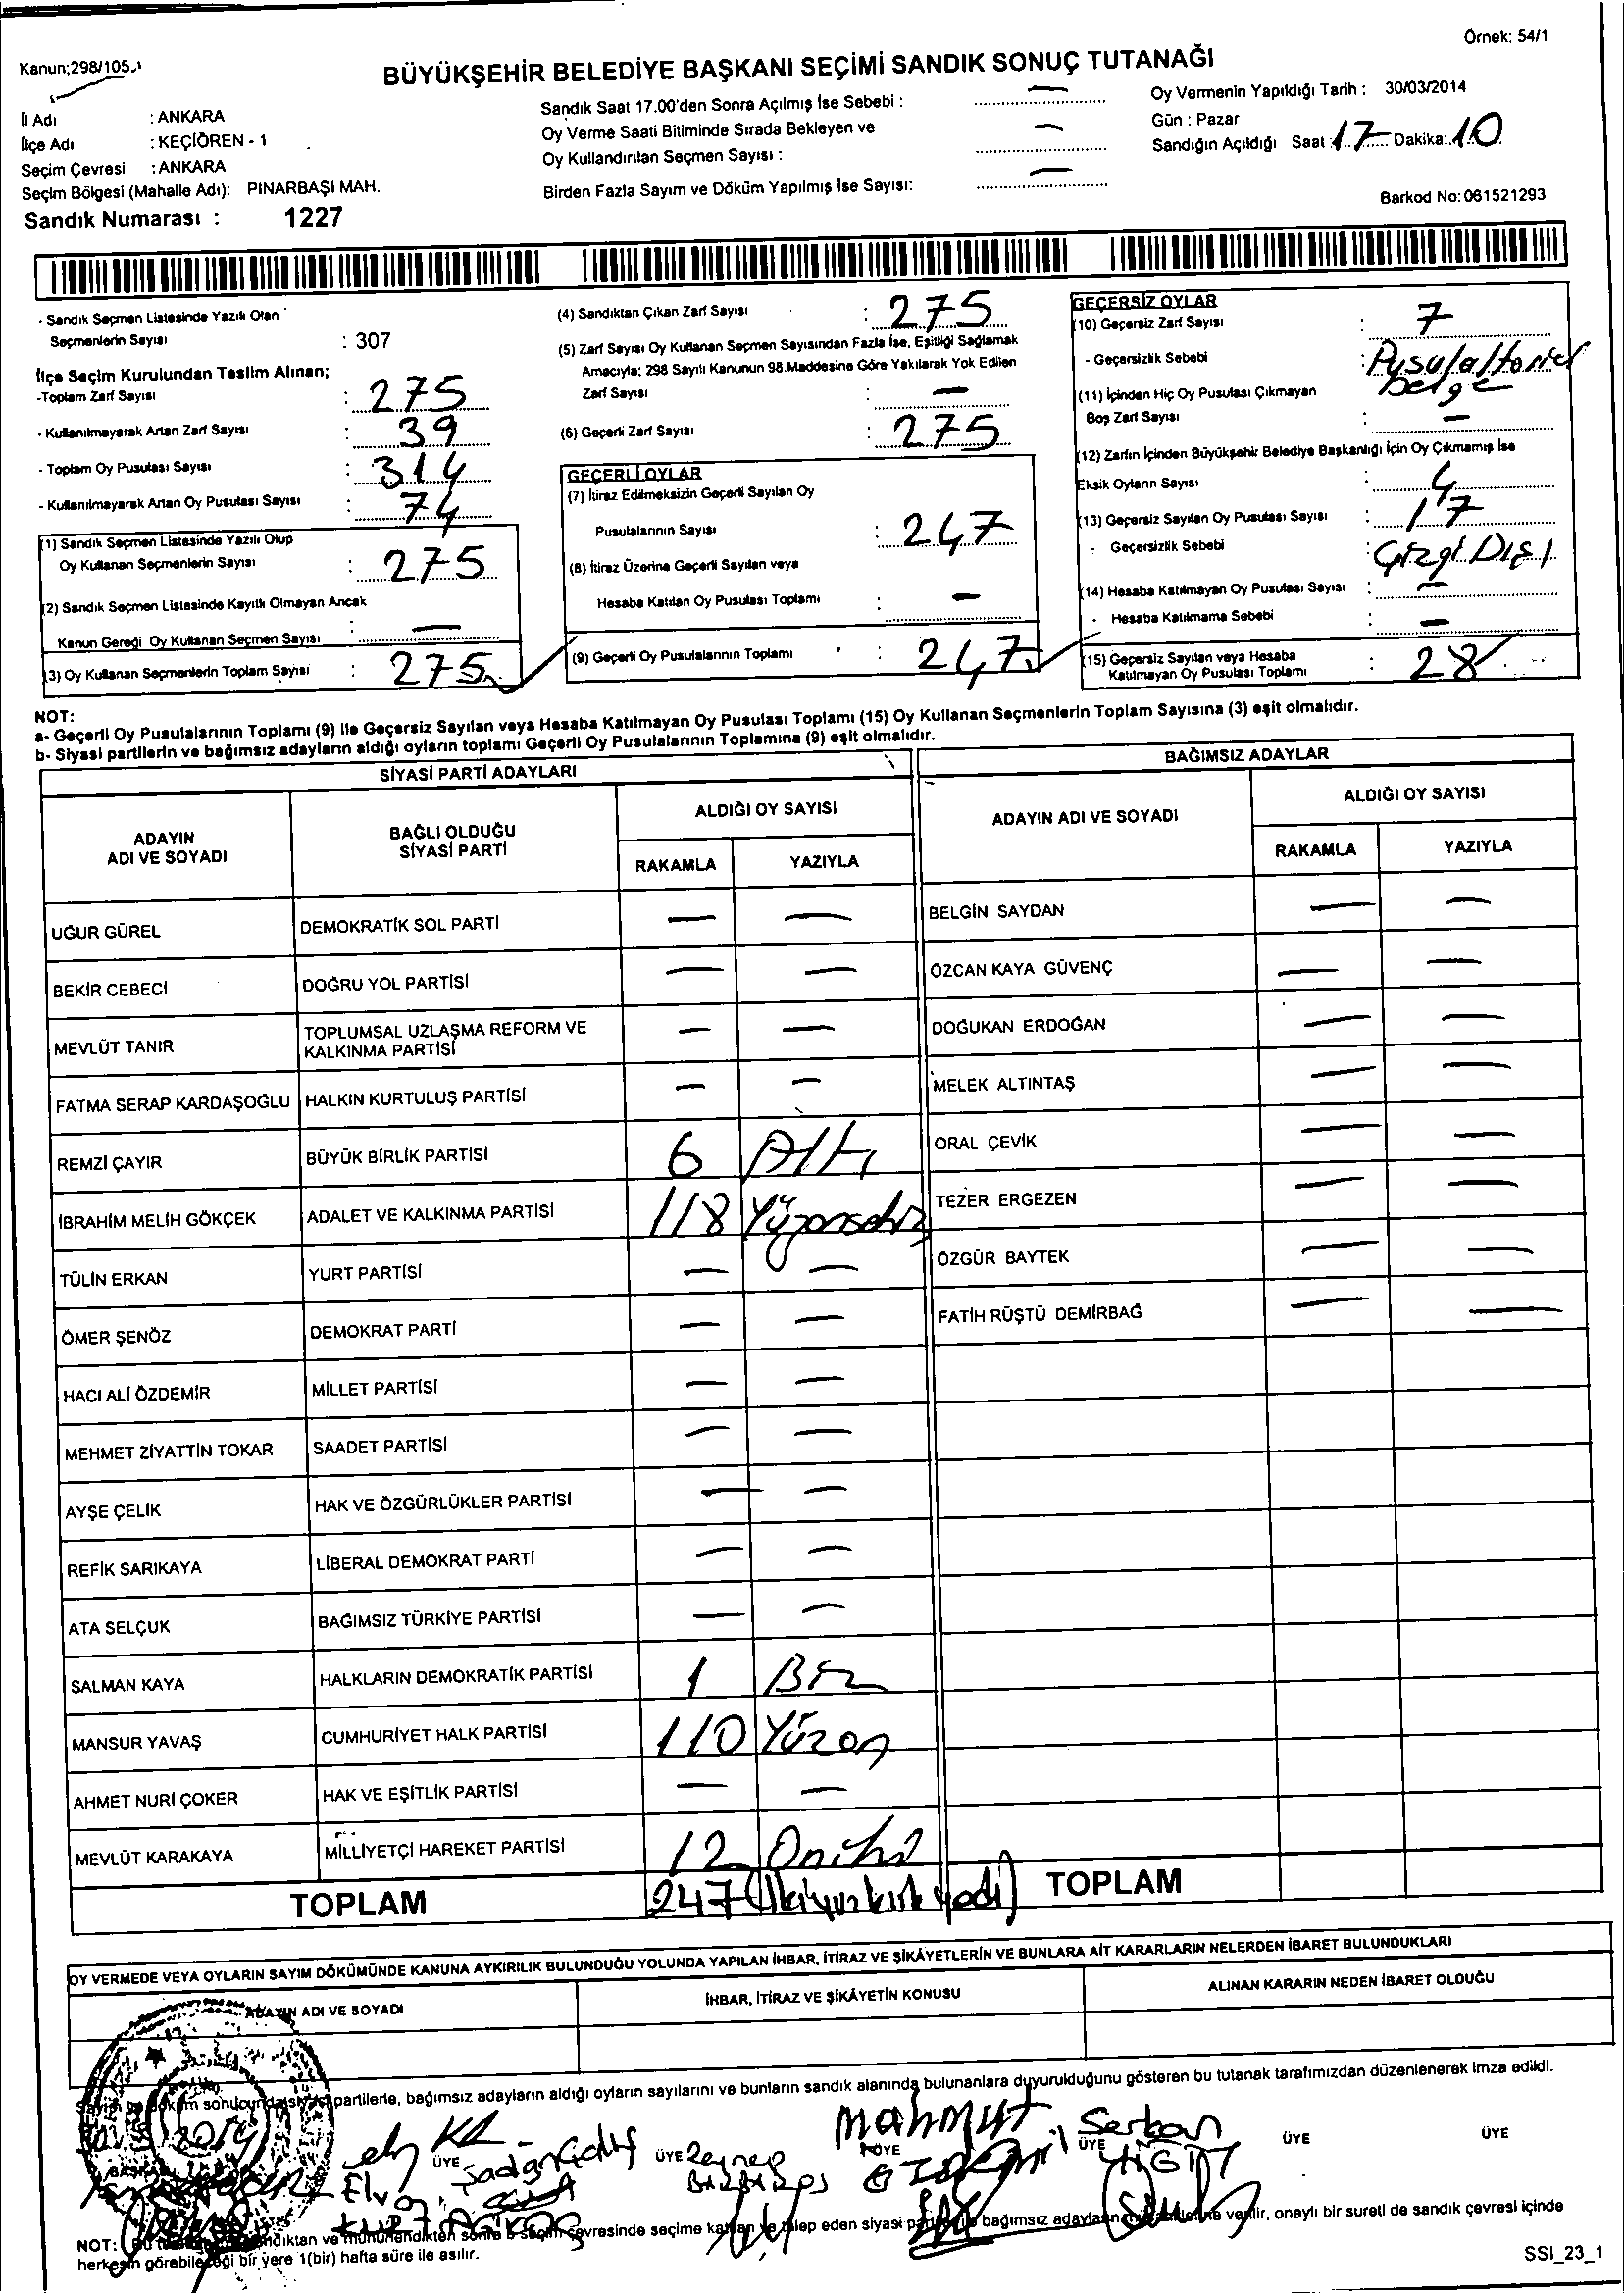 Örnek: 54/1
Kanun;298/105.
BÜYÜKŞEHİR BELEDİYE BAŞKANI SEÇİMİ SANDIK SONUÇ TUTANAĞI
İl Adı : ANKARA
İlçe Adı : KEÇİÖREN - 1
Seçim Çevresi : ANKARA
Seçim Bölgesi (Mahalle Adı): PINARBAŞI MAH.
Sandık Numarası : 1227
Sandık Saat 17.00'den Sonra Açılmış İse Sebebi : —
Oy Verme Saati Bitiminde Sırada Bekleyen ve
Oy Kullandırılan Seçmen Sayısı : —
Birden Fazla Sayım ve Döküm Yapılmış İse Sayısı: —
Oy Vermenin Yapıldığı Tarih : 30/03/2014
Gün : Pazar
Sandığın Açıldığı Saat : 17 Dakika: 10
Barkod No: 061521293
- Sandık Seçmen Listesinde Yazılı Olan
Seçmenlerin Sayısı : 307
İlçe Seçim Kurulundan Teslim Alınan;
-Toplam Zarf Sayısı : 275
- Kullanılmayarak Artan Zarf Sayısı : 39
- Toplam Oy Pusulası Sayısı : 314
- Kullanılmayarak Artan Oy Pusulası Sayısı : 74
(1) Sandık Seçmen Listesinde Yazılı Olup
Oy Kullanan Seçmenlerin Sayısı : 275
(2) Sandık Seçmen Listesinde Kayıtlı Olmayan Ancak
Kanun Gereği Oy Kullanan Seçmen Sayısı : —
(3) Oy Kullanan Seçmenlerin Toplam Sayısı : 275
(4) Sandıktan Çıkan Zarf Sayısı : 275
(5) Zarf Sayısı Oy Kullanan Seçmen Sayısından Fazla İse, Eşitliği Sağlamak
Amacıyla; 298 Sayılı Kanunun 98.Maddesine Göre Yakılarak Yok Edilen
Zarf Sayısı : —
(6) Geçerli Zarf Sayısı : 275
GEÇERLİ OYLAR
(7) İtiraz Edilmeksizin Geçerli Sayılan Oy
Pusulalarının Sayısı : 247
(8) İtiraz Üzerine Geçerli Sayılan veya
Hesaba Katılan Oy Pusulası Toplamı : —
(9) Geçerli Oy Pusulalarının Toplamı : 247
GEÇERSİZ OYLAR
(10) Geçersiz Zarf Sayısı : 7
- Geçersizlik Sebebi : Pusula harici
belge
(11) İçinden Hiç Oy Pusulası Çıkmayan
Boş Zarf Sayısı : —
(12) Zarfın İçinden Büyükşehir Belediye Başkanlığı İçin Oy Çıkmamış İse
Eksik Oyların Sayısı : 4
(13) Geçersiz Sayılan Oy Pusulası Sayısı : 17
- Geçersizlik Sebebi : Çizgi Dışı
(14) Hesaba Katılmayan Oy Pusulası Sayısı : —
- Hesaba Katılmama Sebebi : —
(15) Geçersiz Sayılan veya Hesaba
Katılmayan Oy Pusulası Toplamı : 28
NOT:
a- Geçerli Oy Pusulalarının Toplamı (9) İle Geçersiz Sayılan veya Hesaba Katılmayan Oy Pusulası Toplamı (15) Oy Kullanan Seçmenlerin Toplam Sayısına (3) eşit olmalıdır.
b- Siyasi partilerin ve bağımsız adayların aldığı oyların toplamı Geçerli Oy Pusulalarının Toplamına (9) eşit olmalıdır.
SİYASİ PARTİ ADAYLARI
ADAYIN ADI VE SOYADI BAĞLI OLDUĞU SİYASİ PARTİ ALDIĞI OY SAYISI
RAKAMLA YAZIYLA
UĞUR GÜREL DEMOKRATİK SOL PARTİ — —
BEKİR CEBECİ DOĞRU YOL PARTİSİ — —
MEVLÜT TANIR TOPLUMSAL UZLAŞMA REFORM VE KALKINMA PARTİSİ — —
FATMA SERAP KARDAŞOĞLU HALKIN KURTULUŞ PARTİSİ — —
REMZİ ÇAYIR BÜYÜK BİRLİK PARTİSİ 6 Altı
İBRAHİM MELİH GÖKÇEK ADALET VE KALKINMA PARTİSİ 118 Yüzonsekiz
TÜLİN ERKAN YURT PARTİSİ — —
ÖMER ŞENÖZ DEMOKRAT PARTİ — —
HACI ALİ ÖZDEMİR MİLLET PARTİSİ — —
MEHMET ZİYATTİN TOKAR SAADET PARTİSİ — —
AYŞE ÇELİK HAK VE ÖZGÜRLÜKLER PARTİSİ — —
REFİK SARIKAYA LİBERAL DEMOKRAT PARTİ — —
ATA SELÇUK BAĞIMSIZ TÜRKİYE PARTİSİ — —
SALMAN KAYA HALKLARIN DEMOKRATİK PARTİSİ 1 Bir
MANSUR YAVAŞ CUMHURİYET HALK PARTİSİ 110 Yüzon
AHMET NURİ ÇOKER HAK VE EŞİTLİK PARTİSİ — —
MEVLÜT KARAKAYA MİLLİYETÇİ HAREKET PARTİSİ 12 Oniki
TOPLAM 247 (İkiyüzkırkyedi)
BAĞIMSIZ ADAYLAR
ADAYIN ADI VE SOYADI ALDIĞI OY SAYISI
RAKAMLA YAZIYLA
BELGİN SAYDAN — —
ÖZCAN KAYA GÜVENÇ — —
DOĞUKAN ERDOĞAN — —
MELEK ALTINTAŞ — —
ORAL ÇEVİK — —
TEZER ERGEZEN — —
ÖZGÜR BAYTEK — —
FATİH RÜŞTÜ DEMİRBAĞ — —
TOPLAM
OY VERMEDE VEYA OYLARIN SAYIM DÖKÜMÜNDE KANUNA AYKIRILIK BULUNDUĞU YOLUNDA YAPILAN İHBAR, İTİRAZ VE ŞİKÂYETLERİN VE BUNLARA AİT KARARLARIN NELERDEN İBARET BULUNDUKLARI
ADAYIN ADI VE SOYADI İHBAR, İTİRAZ VE ŞİKÂYETİN KONUSU ALINAN KARARIN NEDEN İBARET OLDUĞU
Sayım ve döküm sonucunda siyasi partilerle, bağımsız adayların aldığı oyların sayılarını ve bunların sandık alanında bulunanlara duyurulduğunu gösteren bu tutanak tarafımızdan düzenlenerek imza edildi.
2014
BAŞKAN ÜYE ÜYE Zeynep Mahmut ÜYE Serkan ÜYE YİĞİT ÜYE ÜYE
NOT: sonra çevresinde seçime talep eden siyasi bağımsız verilir, onaylı bir sureti de sandık çevresi içinde
herkesin görebileceği bir yere 1(bir) hafta süre ile asılır.
SSI_23_1